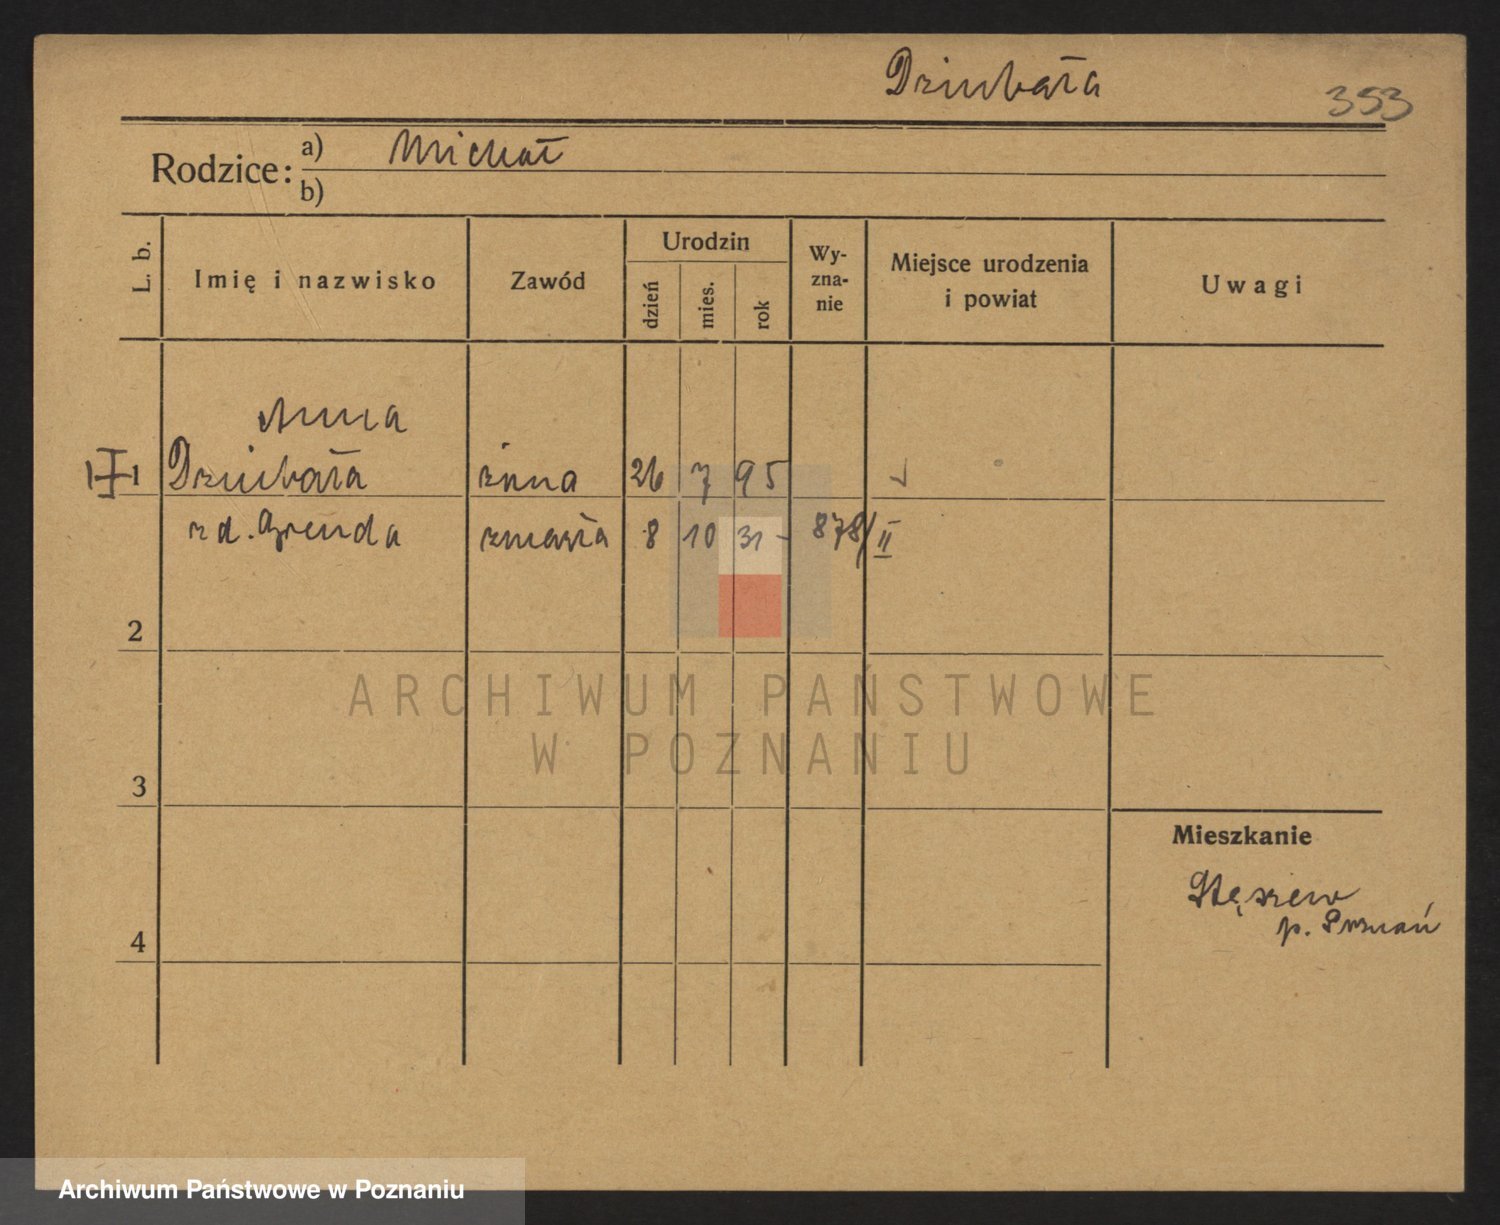 Dziubała
353
Rodzice:
a) Michał
b)
L. b.
Imię i nazwisko
Zawód
Urodzin
dzień
mies.
rok
Wy-
zna-
nie
Miejsce urodzenia
i powiat
Uwagi
Anna
1 Dziubała żona 26 7 95
zd. Grenda zmarła 8 10 31 - 878/II
2
3
4
Mieszkanie
Stęszew
p. Poznań
ARCHIWUM PAŃSTWOWE
W POZNANIU
Archiwum Państwowe w Poznaniu